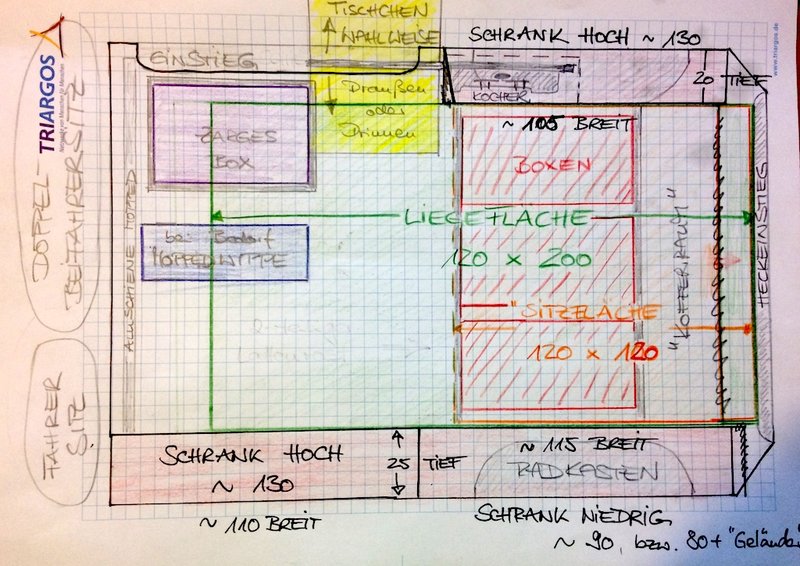 TISCHCHEN
WAHLWEISE
Draußen
oder
Drinnen
SCHRANK HOCH ~ 130
EINSTIEG
KOCHER
20 TIEF
TRIARGOS
Netzwerk von Menschen für Menschen
www.triargos.de
DOPPEL-
BEIFAHRERSITZ
FAHRER
SITZ
ALUSCHIENE MOPPED
ZARGES
BOX
bei Bedarf
MOPPEDWIPPE
~ 105 BREIT
BOXEN
LIEGEFLÄCHE
120 x 200
"SITZFLÄCHE
120 x 120
"KOFFERRAUM"
HECKEINSTIEG
SCHRANK HOCH
~ 130
25 TIEF
~ 115 BREIT
RADKASTEN
~ 110 BREIT
SCHRANK NIEDRIG
~ 90, bzw. 80 + "Geländer"